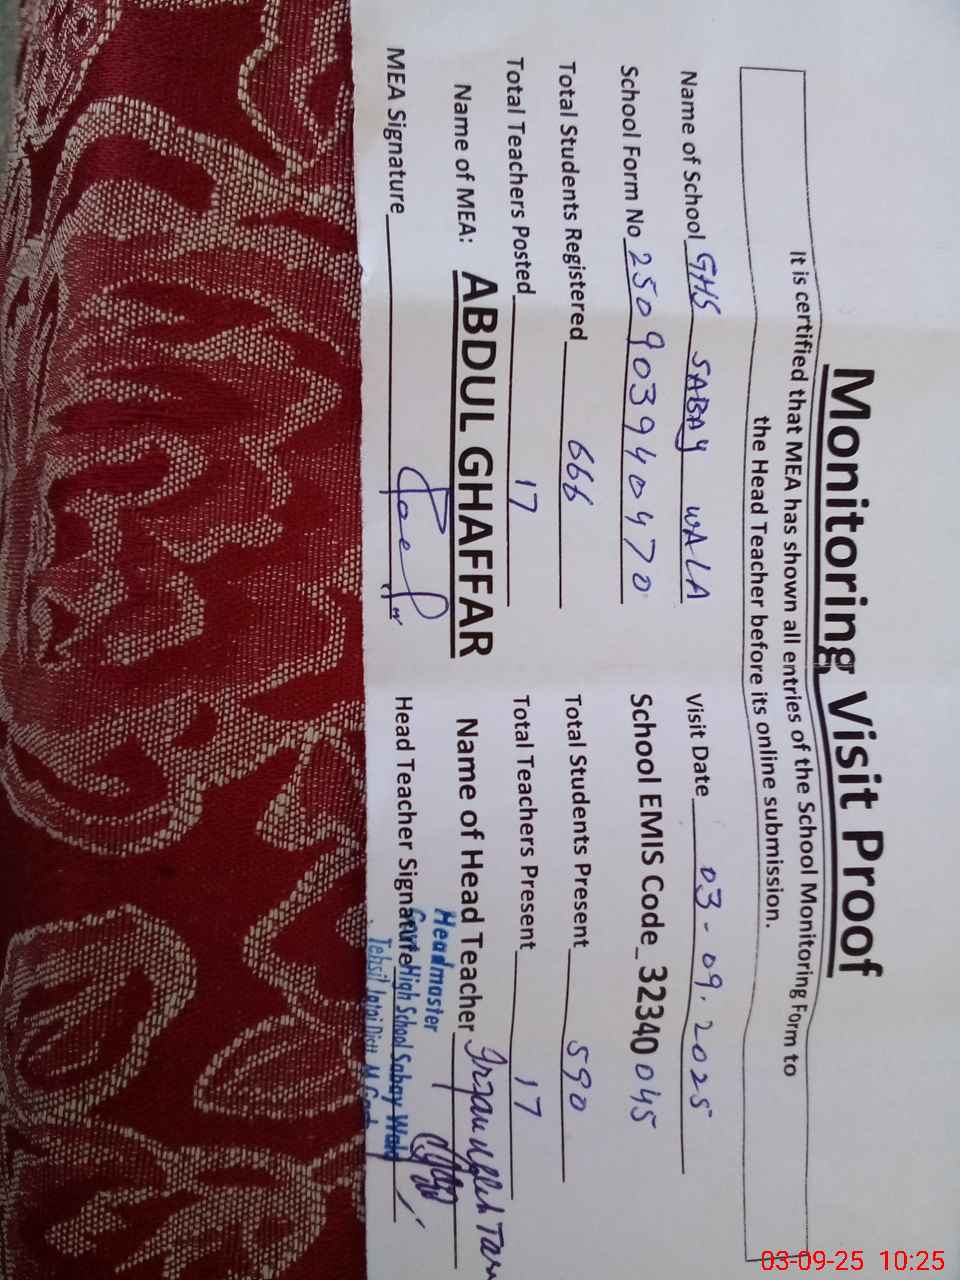 Monitoring Visit Proof
It is certified that MEA has shown all entries of the School Monitoring Form to
the Head Teacher before its online submission.
Name of School GHS SABAY WALA Visit Date 03-09.2025
School Form No 250903940470 School EMIS Code 32340045
Total Students Registered 666 Total Students Present 590
Total Teachers Posted 17 Total Teachers Present 17
Name of MEA: ABDUL GHAFFAR Name of Head Teacher
MEA Signature Head Teacher Signature
Headmaster
Govt High School Sabay Wala
Tehsil Jatoi Distt M.Garh
03-09-25 10:25